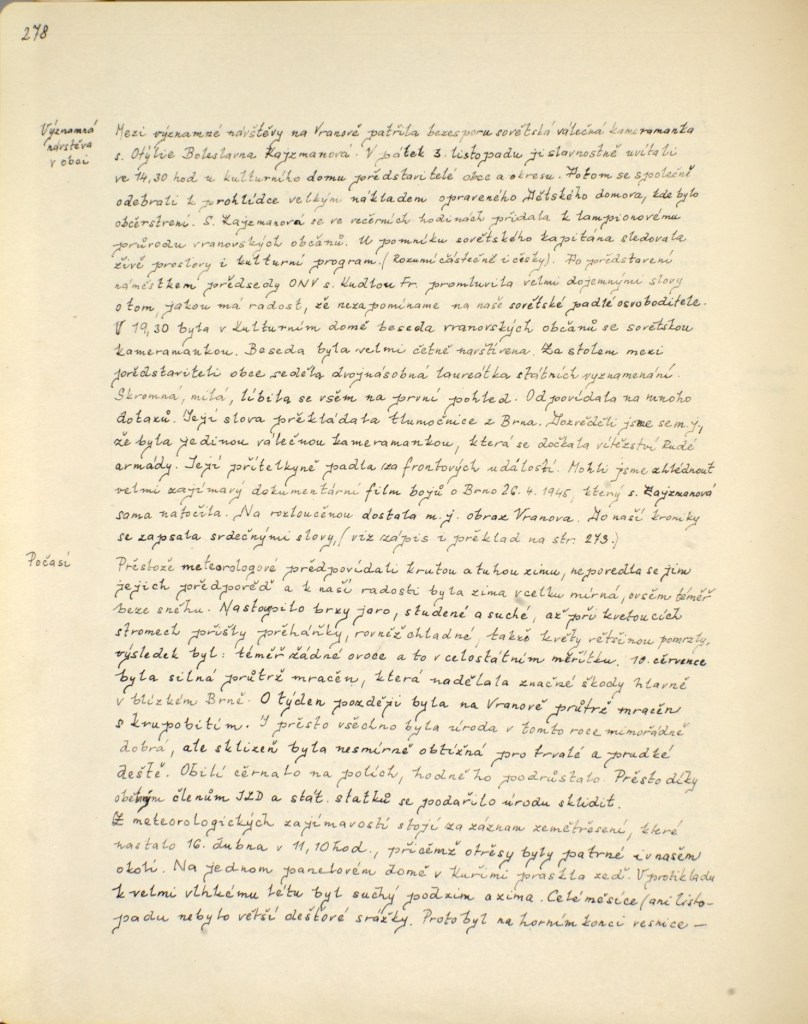 278
Významná
návštěva
v obci
Mezi významné návštěvy na Vranově patřila bezesporu sovětská válečná kameramanka
s. Otýlie Boleslavna Rajzmanová. V pátek 3. listopadu ji slavnostně uvítali
ve 14,30 hod u kulturního domu představitelé obce a okresu. Potom se společně
odebrali k prohlídce velkým nákladem opraveného Dětského domova, kde bylo
občerstvení. S. Rajzmanová se ve večerních hodinách přidala k lampionovému
průvodu vranovských občanů. U pomníku sovětského kapitána sledovala
živě proslovy i kulturní program. (Rozumí částečně i česky). Po představení
náměstkem předsedy ONV s. Kudlou Fr. promluvila velmi dojemnými slovy
o tom, jakou má radost, že nezapomínáme na naše sovětské padlé osvoboditele.
V 19,30 byla v kulturním domě beseda vranovských občanů se sovětskou
kameramankou. Beseda byla velmi četně navštívena. Za stolem mezi
představiteli obce seděla dvojnásobná laureátka státních vyznamenání.
Skromná, milá, líbila se všem na první pohled. Odpovídala na mnoho
dotazů. Její slova překládala tlumočnice z Brna. Dozvěděli jsme se m.j.,
že byla jedinou válečnou kameramankou, která se dočkala vítězství Rudé
armády. Její přítelkyně padla za frontových událostí. Mohli jsme zhlédnout
velmi zajímavý dokumentární film bojů o Brno 26. 4. 1945, který s. Rajzmanová
sama natočila. Na rozloučenou dostala m.j. obraz Vranova. Do naší kroniky
se zapsala srdečnými slovy, (viz zápis i překlad na str. 273.)
Počasí
Přestože meteorologové předpovídali krutou a tuhou zimu, nepovedla se jim
jejich předpověď a k naší radosti byla zima vcelku mírná, ovšem téměř
beze sněhu. Nastoupilo brzy jaro, studené a suché, až při kvetoucích
stromech přišly přeháňky, rovněž chladné, takže květy většinou pomrzly,
výsledek byl: téměř žádné ovoce a to v celostátním měřítku. 10. července
byla silná průtrž mračen, která nadělala značné škody hlavně
v blízkém Brně. O týden později byla na Vranově průtrž mračen
s krupobitím. I přesto všechno byla úroda v tomto roce mimořádně
dobrá, ale sklizeň byla nesmírně obtížná pro trvalé a prudké
deště. Obilí černalo na polích, hodně ho podrůstalo. Přesto díky
obětavým členům JZD a stát. statků se podařilo úrodu sklidit.
Z meteorologických zajímavostí stojí za záznam zemětřesení, které
nastalo 16. dubna v 11,10 hod., přičemž otřesy byly patrné i v našem
okolí. Na jednom panelovém domě v Kuřimi praskla zeď. V protikladu
k velmi vlhkému létu byl suchý podzim a zima. Celé měsíce (ani listo-
padu nebylo větší dešťové srážky. Proto byl na horním konci vesnice —